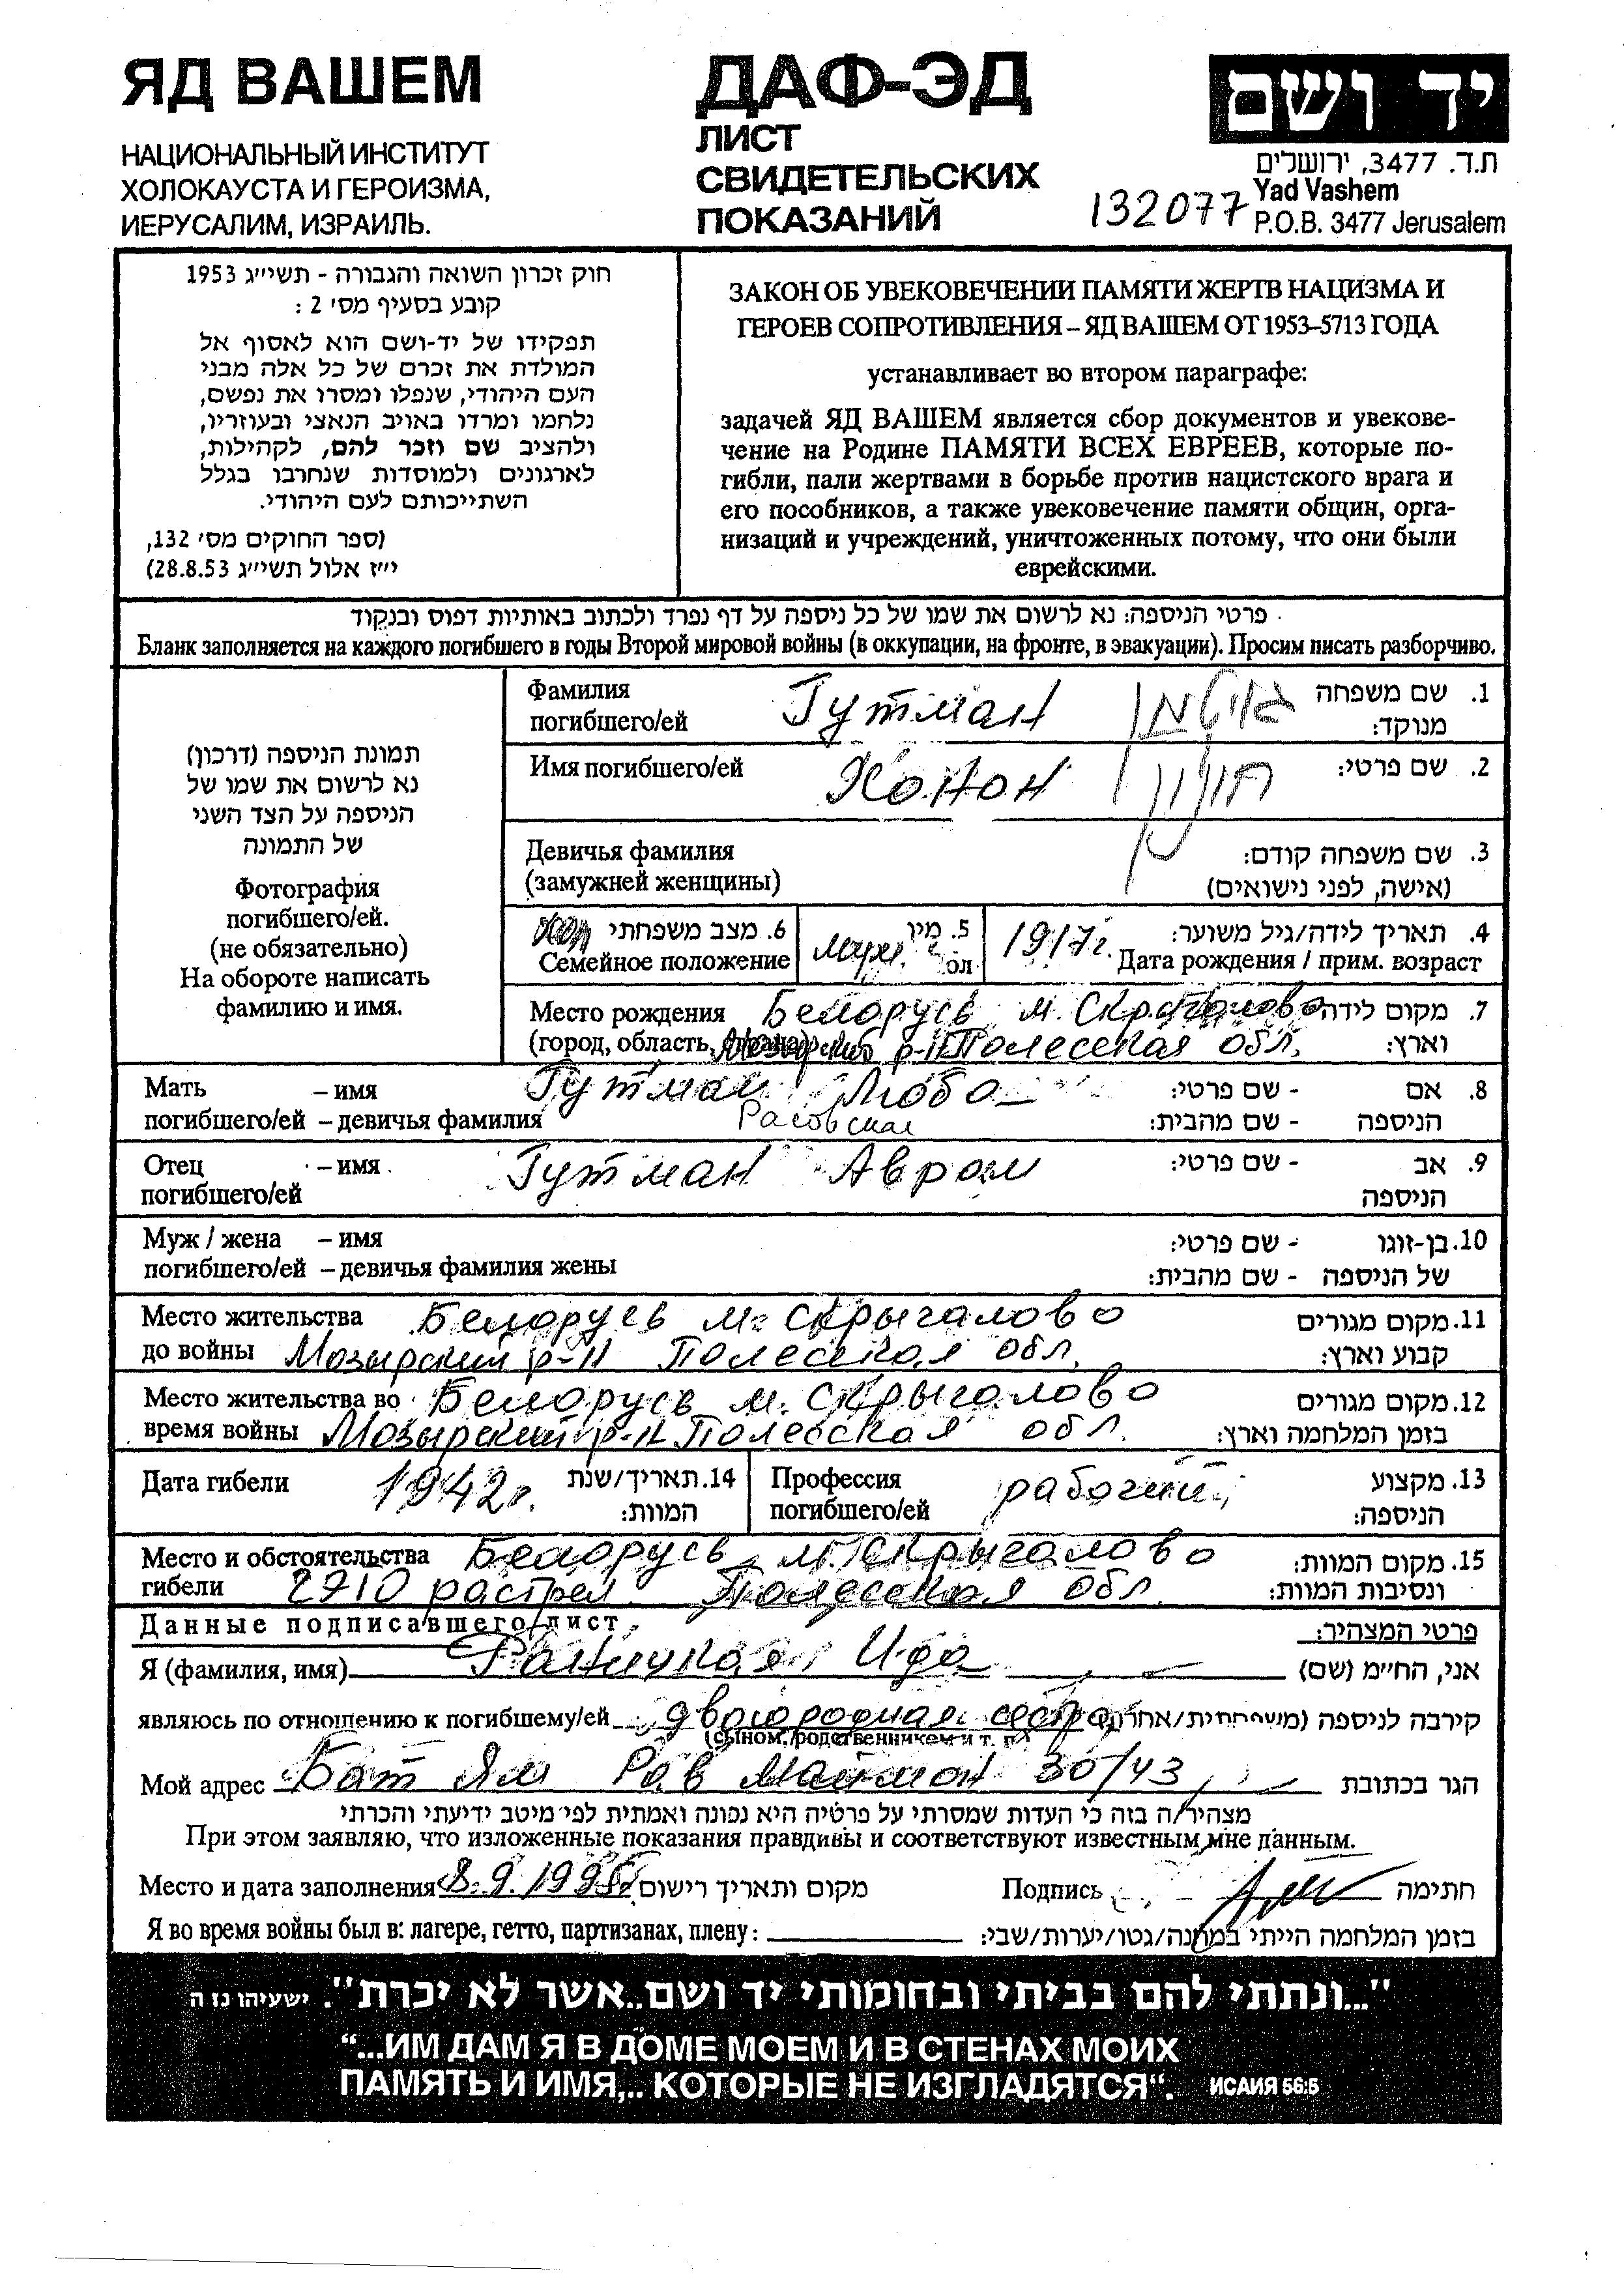 ЯД ВАШЕМ
НАЦИОНАЛЬНЫЙ ИНСТИТУТ
ХОЛОКАУСТА И ГЕРОИЗМА,
ИЕРУСАЛИМ, ИЗРАИЛЬ.
ДАФ-ЭД
ЛИСТ
СВИДЕТЕЛЬСКИХ
ПОКАЗАНИЙ
132077
יד ושם
ת.ד. 3477, ירושלים
Yad Vashem
P.O.B. 3477 Jerusalem
חוק זכרון השואה והגבורה - תשי״ג 1953
קובע בסעיף מס׳ 2 :
תפקידו של יד-ושם הוא לאסוף אל
המולדת את זכרם של כל אלה מבני
העם היהודי, שנפלו ומסרו את נפשם,
נלחמו ומרדו באויב הנאצי ובעוזריו,
ולהציב שם וזכר להם, לקהילות,
לארגונים ולמוסדות שנחרבו בגלל
השתייכותם לעם היהודי.
(ספר החוקים מס׳ 132,
י״ז אלול תשי״ג 28.8.53)
ЗАКОН ОБ УВЕКОВЕЧЕНИИ ПАМЯТИ ЖЕРТВ НАЦИЗМА И
ГЕРОЕВ СОПРОТИВЛЕНИЯ – ЯД ВАШЕМ ОТ 1953–5713 ГОДА
устанавливает во втором параграфе:
задачей ЯД ВАШЕМ является сбор документов и увекове-
чение на Родине ПАМЯТИ ВСЕХ ЕВРЕЕВ, которые по-
гибли, пали жертвами в борьбе против нацистского врага и
его пособников, а также увековечение памяти общин, орга-
низаций и учреждений, уничтоженных потому, что они были
еврейскими.
פרטי הניספה: נא לרשום את שמו של כל ניספה על דף נפרד ולכתוב באותיות דפוס ובנקוד
Бланк заполняется на каждого погибшего в годы Второй мировой войны (в оккупации, на фронте, в эвакуации). Просим писать разборчиво.
תמונת הניספה (דרכון)
נא לרשום את שמו של
הניספה על הצד השני
של התמונה
Фотография
погибшего/ей.
(не обязательно)
На обороте написать
фамилию и имя.
Фамилия Гутман גוטמן 1. שם משפחה
погибшего/ей מנוקד:
Имя погибшего/ей Хонон חונון 2. שם פרטי:
Девичья фамилия 3. שם משפחה קודם:
(замужней женщины) (אישה, לפני נישואים)
6. מצב משפחתי 5. מין 1917г. 4. תאריך לידה/גיל משוער:
Семейное положение муж. ол Дата рождения / прим. возраст
Место рождения Белорусь м. Скрыголово 7. מקום לידה
(город, область, страна) Мозырский р-н Полесская обл. וארץ:
Мать – имя Гутман Люба 8. אם - שם פרטי:
погибшего/ей – девичья фамилия Расовская הניספה - שם מהבית:
Отец – имя Гутман Авром 9. אב - שם פרטי:
погибшего/ей הניספה
Муж / жена – имя 10. בן-זוגו - שם פרטי:
погибшего/ей – девичья фамилия жены של הניספה - שם מהבית:
Место жительства Белорусь м. Скрыгалово 11. מקום מגורים
до войны Мозырский р-н Полесская обл. קבוע וארץ:
Место жительства во Белорусь м. Скрыгалово 12. מקום מגורים
время войны Мозырский р-н Полесская обл. בזמן המלחמה וארץ:
Дата гибели 1942г. 14. תאריך/שנת Профессия рабочий 13. מקצוע
המוות: погибшего/ей הניספה:
Место и обстоятельства Белорусь м. Скрыгалово 15. מקום המוות:
гибели растрел. Полесская обл. ונסיבות המוות:
Данные подписавшего лист פרטי המצהיר:
Я (фамилия, имя) Ида אני, החי״מ (שם)
являюсь по отношению к погибшему/ей двоюродная сестра קירבה לניספה (משפחתית/אחרת)
(сыном, родственником и т. п.)
Мой адрес Бат Ям Рав Маймон 30/43, הגר בכתובת
מצהיר/ה בזה כי העדות שמסרתי על פרטיה היא נכונה ואמתית לפי מיטב ידיעתי והכרתי
При этом заявляю, что изложенные показания правдивы и соответствуют известным мне данным.
Место и дата заполнения 8.9.1995 מקום ותאריך רישום Подпись חתימה
Я во время войны был в: лагере, гетто, партизанах, плену: בזמן המלחמה הייתי במחנה/גטו/יערות/שבי:
"...ונתתי להם בביתי ובחומותי יד ושם..אשר לא יכרת". ישעיהו נו ה
“...ИМ ДАМ Я В ДОМЕ МОЕМ И В СТЕНАХ МОИХ
ПАМЯТЬ И ИМЯ,.. КОТОРЫЕ НЕ ИЗГЛАДЯТСЯ“. ИСАИЯ 56:5